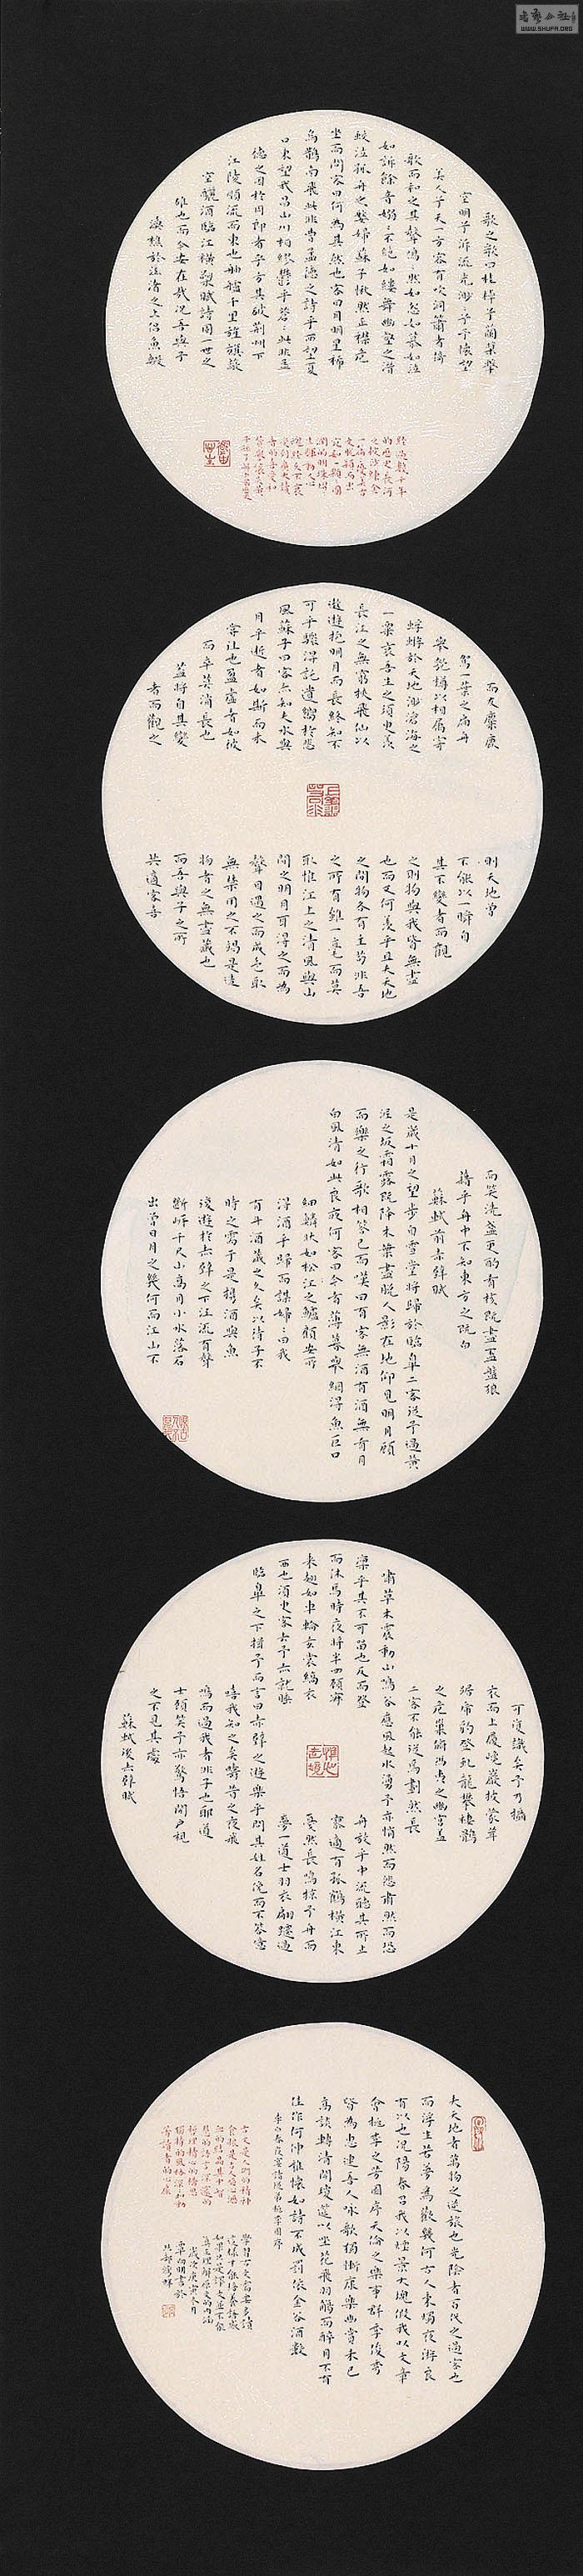 WWW.SHUFA.ORG
歌之歌曰桂棹兮蘭槳擊
空明兮泝流光渺兮予懷望
美人兮天一方客有吹洞簫者倚
歌而和之其聲嗚然如怨如慕如泣
如訴餘音嫋〻不絕如縷舞幽壑之潛
蛟泣孤舟之嫠婦蘇子愀然正襟危
坐而問客曰何為其然也客曰月明星稀
烏鵲南飛此非曹孟德之詩乎西望夏
口東望武昌山川相繆鬱乎蒼〻此非孟
德之困於周郎者乎方其破荆州下
江陵順流而東也舳艫千里旌旗蔽
空釃酒臨江橫槊賦詩固一世之
雄也而今安在哉況吾與子
漁樵於江渚之上侶魚蝦
而友麋鹿
駕一葉之扁舟
舉匏樽以相屬寄
蜉蝣於天地渺滄海之
一粟哀吾生之須臾羨
長江之無窮挾飛仙以
遨遊抱明月而長終知不
可乎驟得託遺響於悲
風蘇子曰客亦知夫水與
月乎逝者如斯而未
嘗往也盈虛者如彼
而卒莫消長也
蓋將自其變
者而觀之
則天地曾
不能以一瞬自
其不變者而觀
之則物與我皆無盡
也而又何羨乎且夫天地
之間物各有主苟非吾
之所有雖一毫而莫
取惟江上之清風與山
間之明月耳得之而為
聲目遇之而成色取
無禁用之不竭是造
物者之無盡藏也
而吾與子之所
共適客喜
而笑洗盞更酌肴核既盡杯盤狼
藉乎舟中不知東方之既白
蘇軾前赤壁賦
是歲十月之望步自雪堂將歸於臨皋二客從予過黃
泥之坂霜露既降木葉盡脫人影在地仰見明月顧
而樂之行歌相答已而嘆曰有客無酒有酒無肴月
白風清如此良夜何客曰今者薄暮舉網得魚巨口
細鱗狀如松江之鱸顧安所
得酒乎歸而謀婦〻曰我
有斗酒藏之久矣以待子不
時之需于是携酒與魚
復遊於赤壁之下江流有聲
斷岸千尺山高月小水落石
出曾日月之幾何而江山不
可復識矣予乃攝
衣而上履巉巖披蒙茸
踞虎豹登虬龍攀棲鶻
之危巢俯馮夷之幽宮蓋
二客不能從焉劃然長
嘯草木震動山鳴谷應風起水湧予亦悄然而悲肅然而恐
凜乎其不可留也反而登
舟放乎中流聽其所止
而休焉時夜將半四顧寂
寥適有孤鶴橫江東
來翅如車輪玄裳縞衣
戛然長鳴掠予舟而
西也須臾客去予亦就睡
夢一道士羽衣翩躚過
臨皋之下揖予而言曰赤壁之遊樂乎問其姓名俛而不答嗚
嘻我知之矣疇昔之夜飛
鳴而過我者非子也耶道
士顧笑予亦驚悟開戶視
之不見其處
蘇軾後赤壁賦
夫天地者萬物之逆旅也光陰者百代之過客也
而浮生若夢為歡幾何古人秉燭夜遊良
有以也況陽春召我以煙景大塊假我以文章
會桃李之芳園序天倫之樂事群季俊秀
皆為惠連吾人咏歌獨慚康樂幽賞未已
高談轉清開瓊筵以坐花飛羽觴而醉月不有
佳作何伸雅懷如詩不成罰依金谷酒數
李白春夜宴諸從弟桃李園序